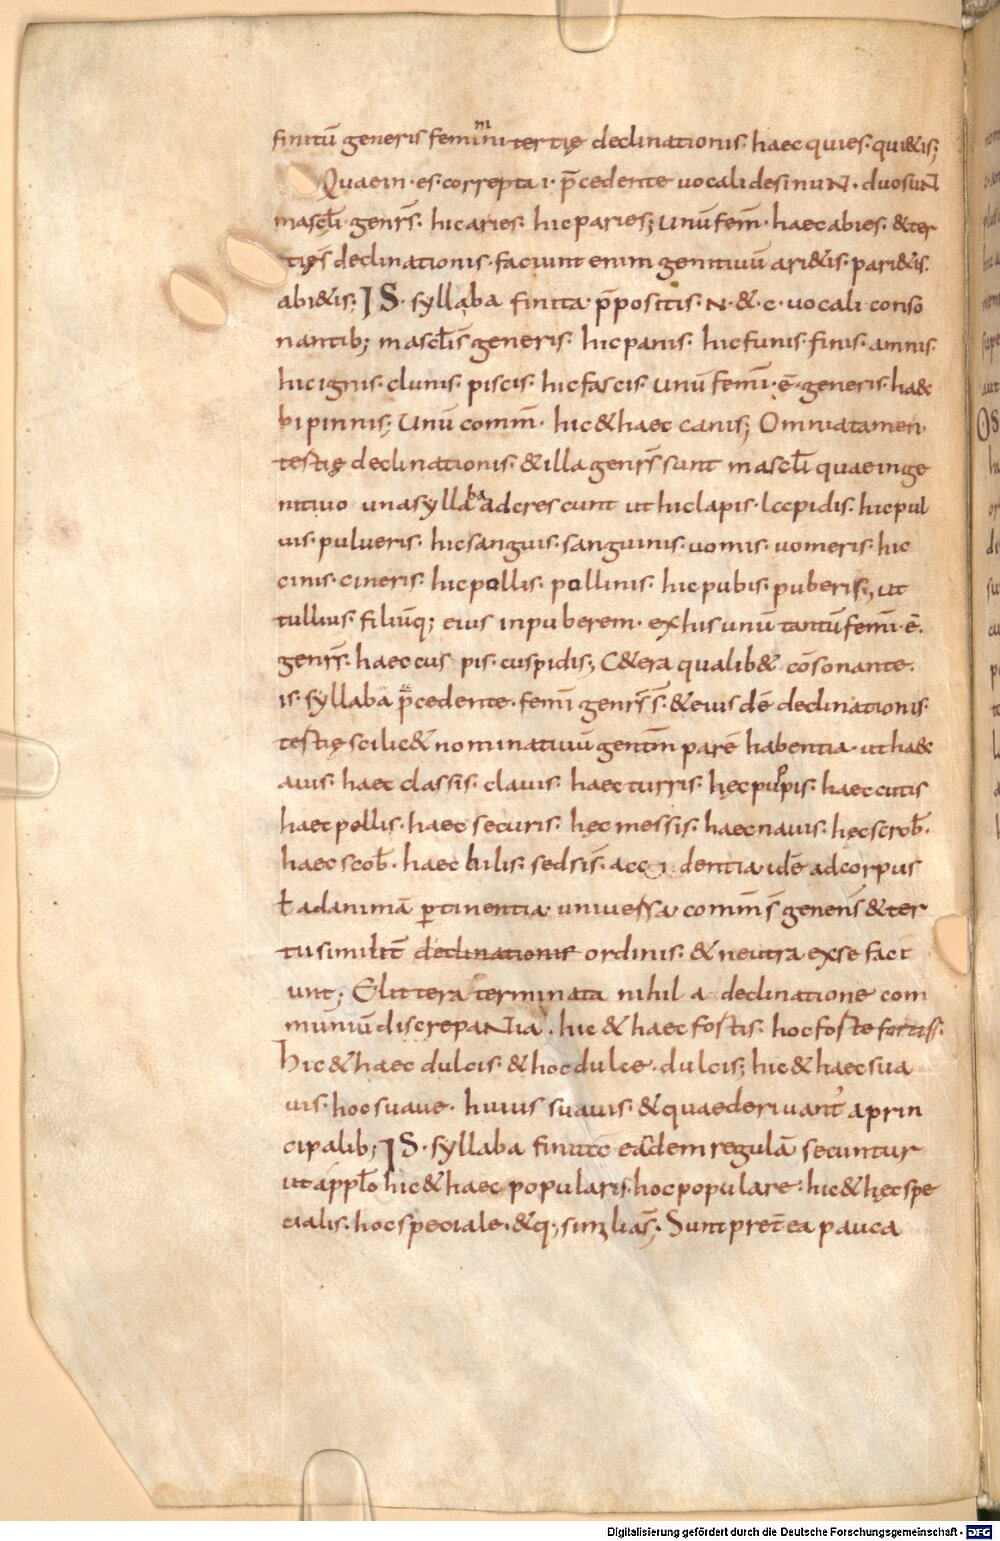 finitū generis femininι tertię declinationis. haec quies. qui&is;
Quae in. es. correpta i. p̄cedente uocali desinunt. duo sunt
mascl̄i. genr̄s. hic aries. hic paries; Unū fem̄. haec abies. & ter
tięs declinationis. faciunt enim genitiuū ari&is. pari&is.
abi&is. IS. syllaba finita p̄positis. N. &. c. uocali conso
nantib; mascl̄is generis. hic panis. hic funis. finis. amnis.
hic ignis. clunis. piscis. hic fascis. Unū femī. ē. generis. haec
bipinnis; Unū comm̄. hic & haec canis; Omnia tamen
testię declinationis. & illa genr̄s sunt mascl̄i quae in ge
nitiuo una syllaba adcrescunt ut hic lapis. lapidis. hic pul
uis. pulueris. hic sanguis. sanguinis. uomis. uomeris. hic
cinis. cineris. hic pollis. pollinis. hic pubis. puberis; ut
tullius. filiūq; eius inpuberem. ex his unū tantū femī. ē.
genr̄s. haec cus pis. cuspidis; C&era qualib& cōsonante.
is. syllaba p̄cedente. femī genr̄s s̄. & eius dē declinationis.
testię scilic& nominatiuū genitm̄ parē habentia. ut haec
auis. haec classis. clauis. haec turris. hęc puppis. haec cutis
haec pellis. haec securis. hęc messis. haec nauis. hęc scrob̄.
haec scob̄. haec bilis. sed si s̄. acci dentia idē ad corpus
ł ad animā ꝑtinentia. uniuersa com̄nis generis & ter
tii similit̄ declinationis ordinis. & neutra ex se faci
unt; E littera terminata nihil a declinatione com
muniū discrepantia. hic & haec fostis. hoc foste fortis.
hic & haec dulcis. & hoc dulce. dulcis; hic & haec sua
uis. hoc suaue. huius suauis. & quae deriuant' a prin
cipalib; IS. syllaba finita eādem regulā secuntur
ut a ppl̄o hic & haec popularis. hoc populare. hic & hęc spe
cialis. hoc speciale. & q; similia s̄; Sunt pret̄ea pauca
Digitalisierung gefördert durch die Deutsche Forschungsgemeinschaft - DFG